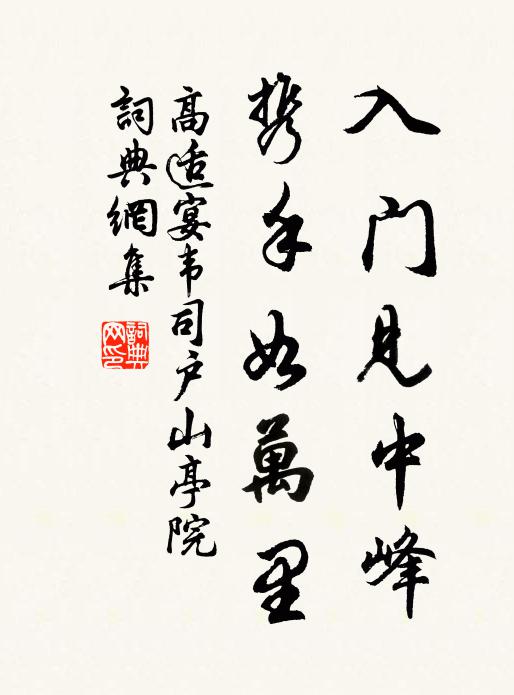 入门见中峰
携手如萬里
高适宴韦司户山亭院
词典網集
詞典網印